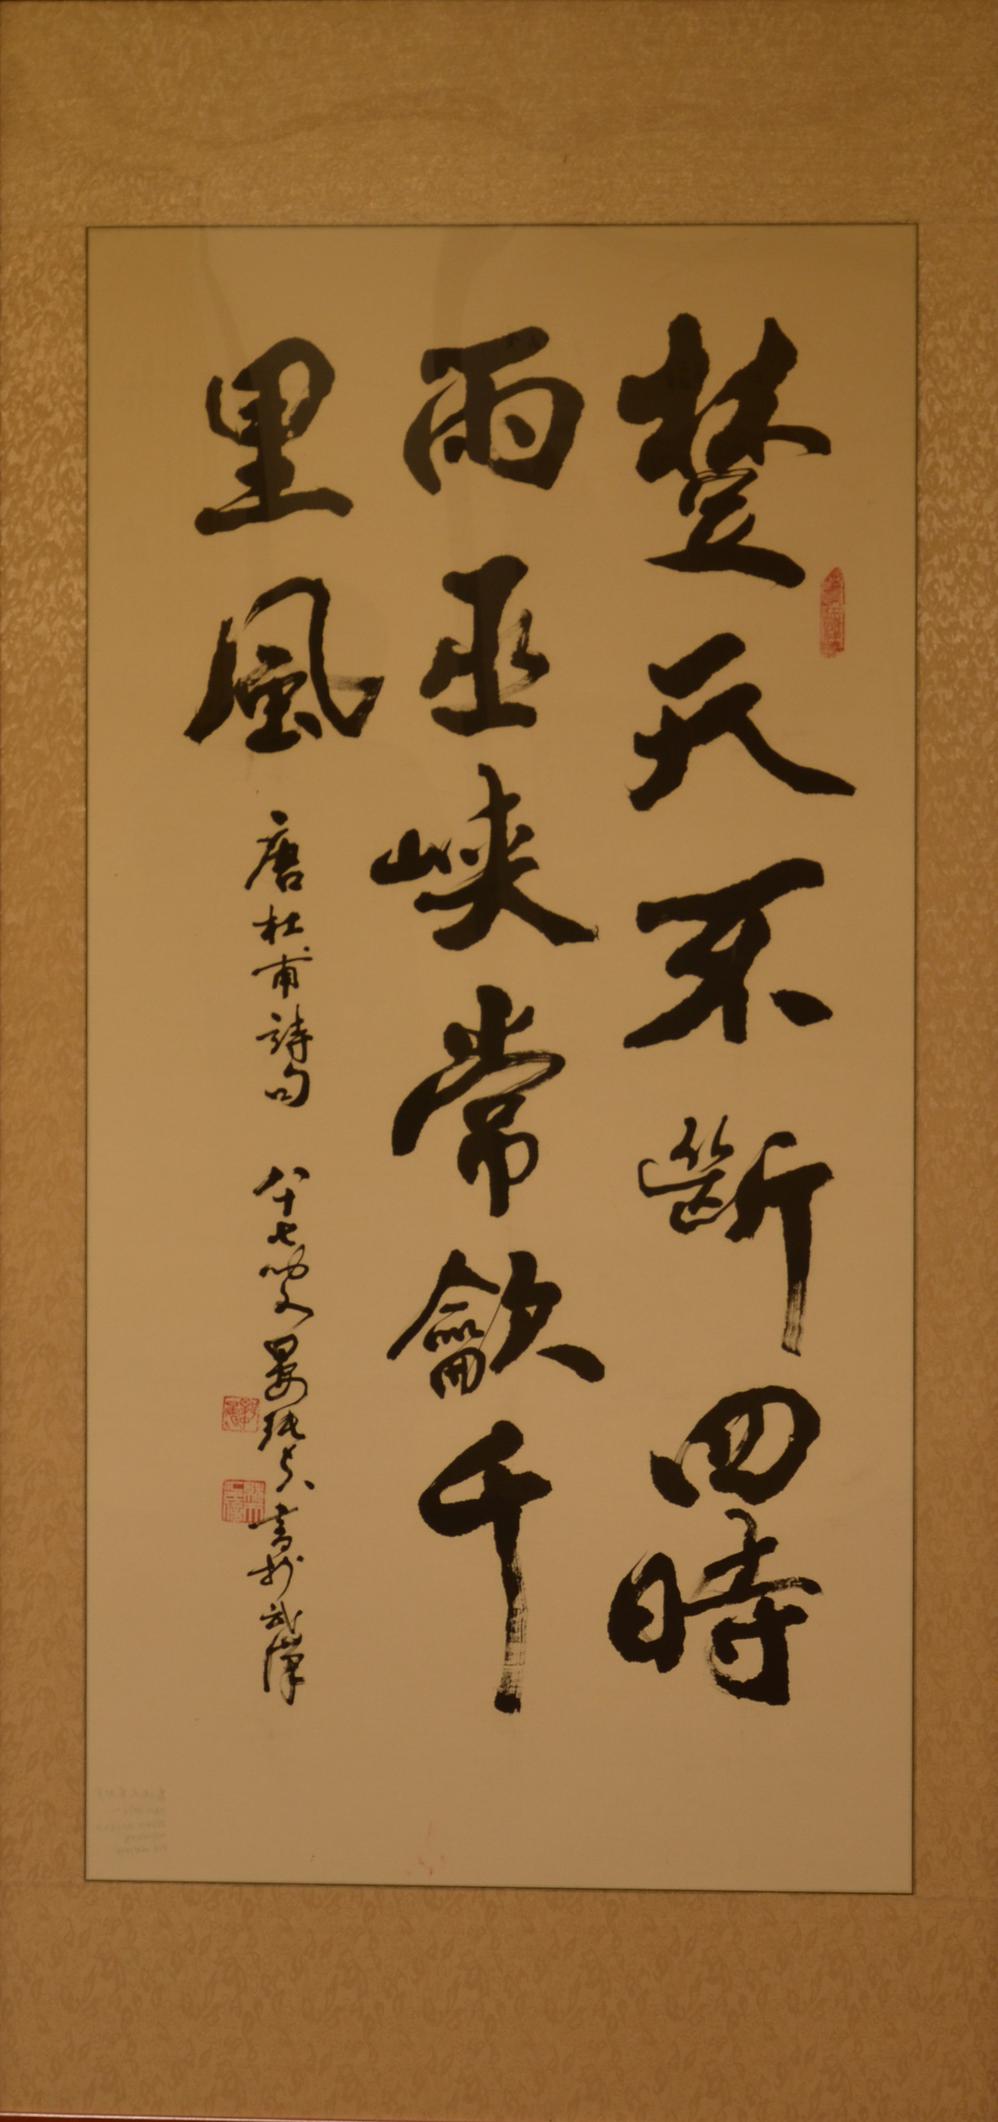 楚天不斷四時
雨巫峽常歙千
里風
唐杜甫詩句 八十七叟晏 書於武漢